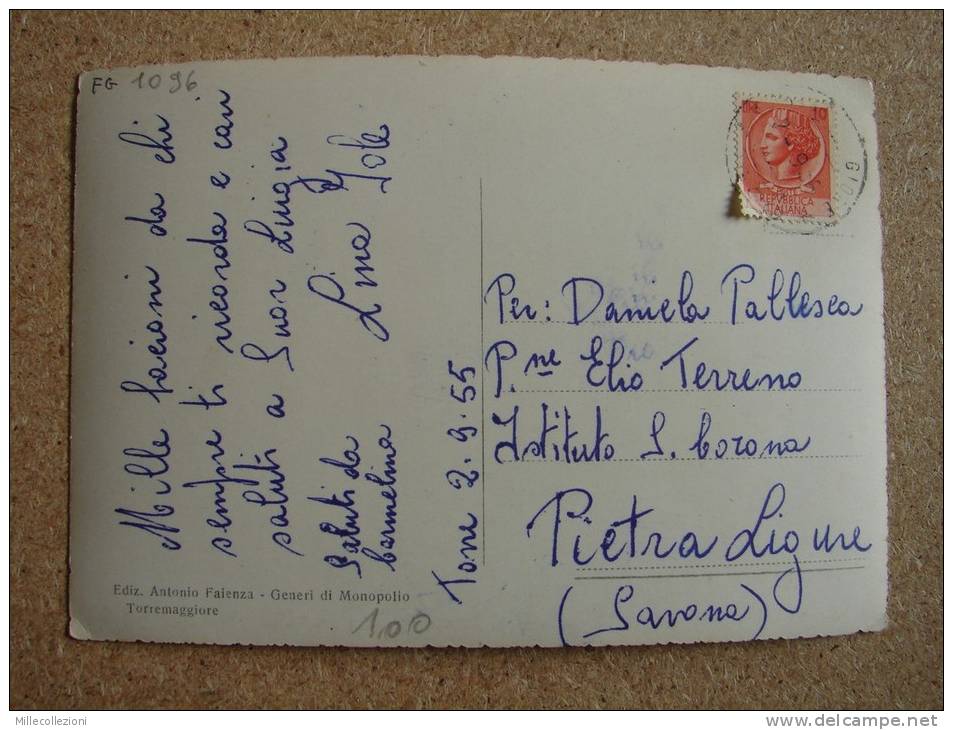 FG 1096
Mille bacioni da chi
sempre ti ricorda e cari
saluti a Suor Luigia
Lina Iole
Saluti da
Carmelina
Torre 2.9.55
Ediz. Antonio Faienza - Generi di Monopolio
Torremaggiore
100
LIRE 10
REPVBBLICA
ITALIANA
Per: Daniela Pallesca
P.ne Elio Terreno
Istituto S. Corona
Pietra Ligure
(Savona)
Millecollezioni
www.delcampe.net